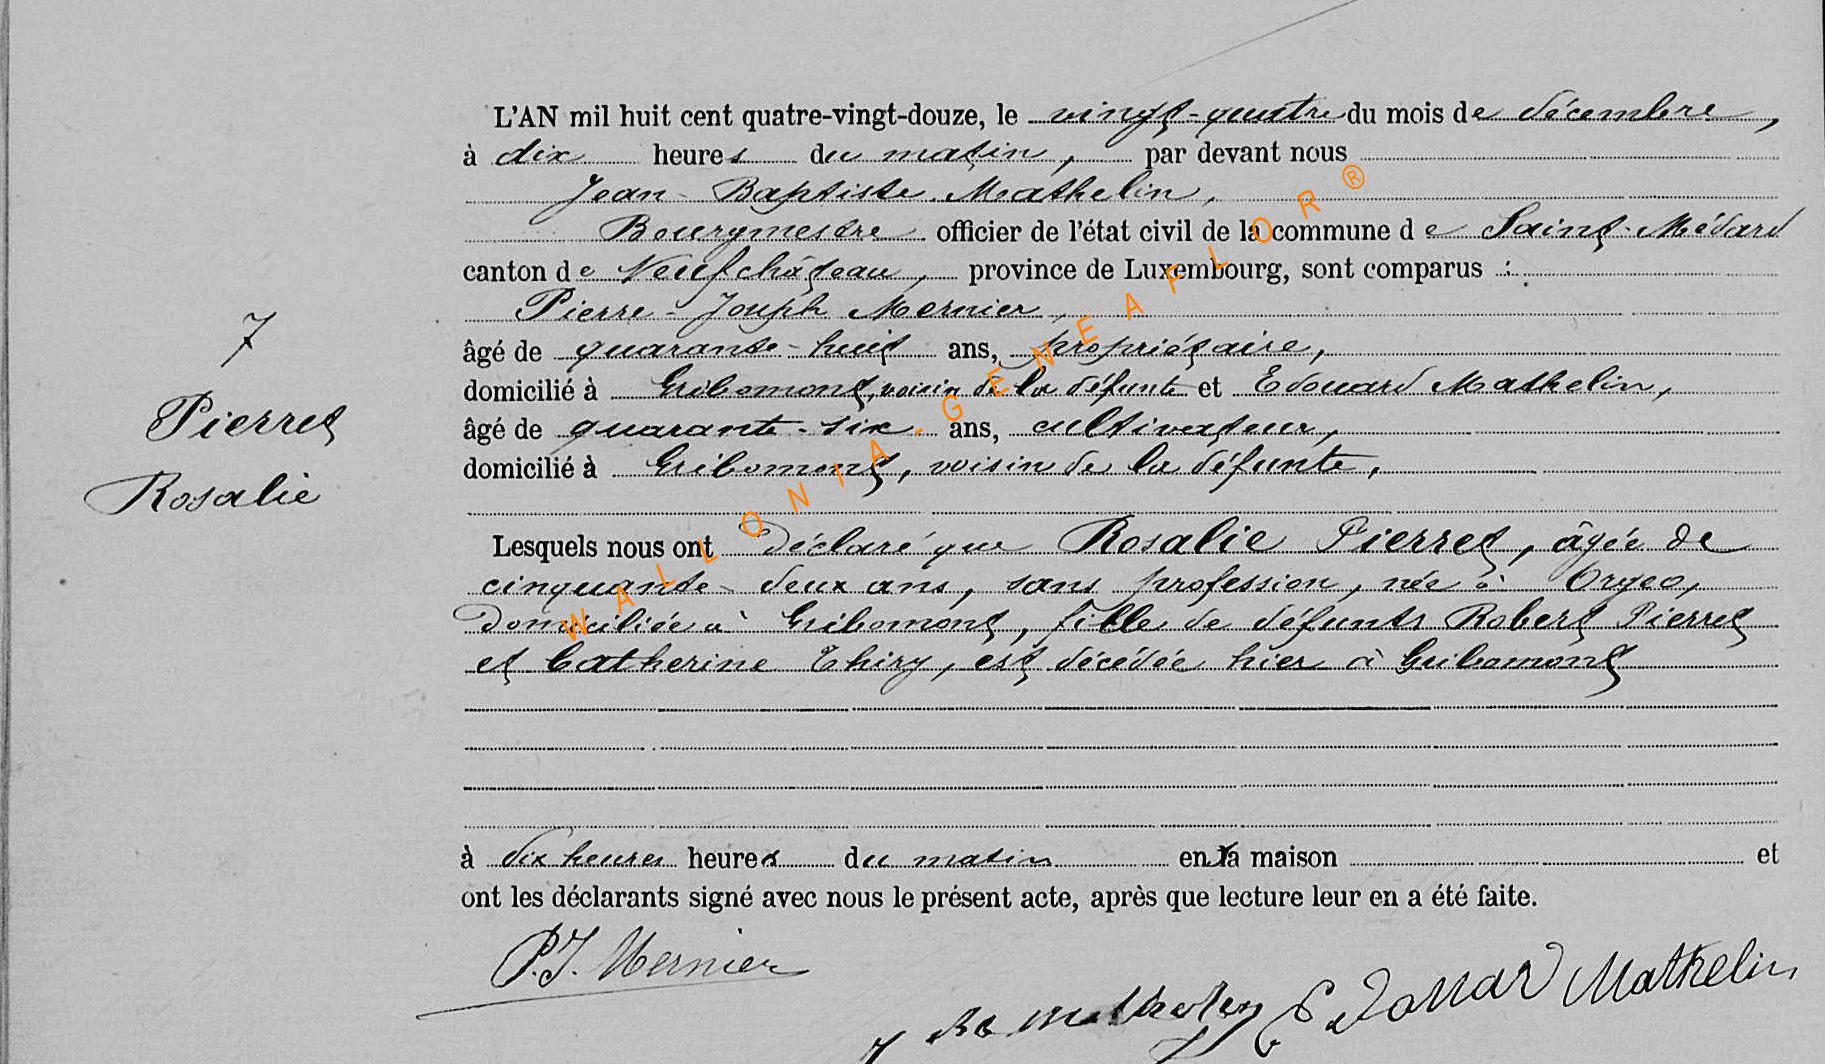 L'AN mil huit cent quatre-vingt-douze, le vingt-quatre du mois de décembre,
à dix heures du matin, par devant nous
Jean-Baptiste Mathelin,
Bourgmestre officier de l'état civil de la commune de Saint-Médard
canton de Neufchâteau, province de Luxembourg, sont comparus :
Pierre-Joseph Mernier,
âgé de quarante-huit ans, propriétaire,
domicilié à Gribomont, voisin de la défunte et Edouard Mathelin,
âgé de quarante-six ans, cultivateur,
domicilié à Gribomont, voisin de la défunte,
7
Pierret
Rosalie
Lesquels nous ont déclaré que Rosalie Pierret, âgée de
cinquante-deux ans, sans profession, née à Orgeo,
domiciliée à Gribomont, fille de défunts Robert Pierret
et Catherine Thiry, est décédée hier à Gribomont
à dix heures heures du matin en la maison et
ont les déclarants signé avec nous le présent acte, après que lecture leur en a été faite.
P.J. Mernier
J Bte Mathelin Edouard Mathelin
WALLONIA.GENEAFLOR®